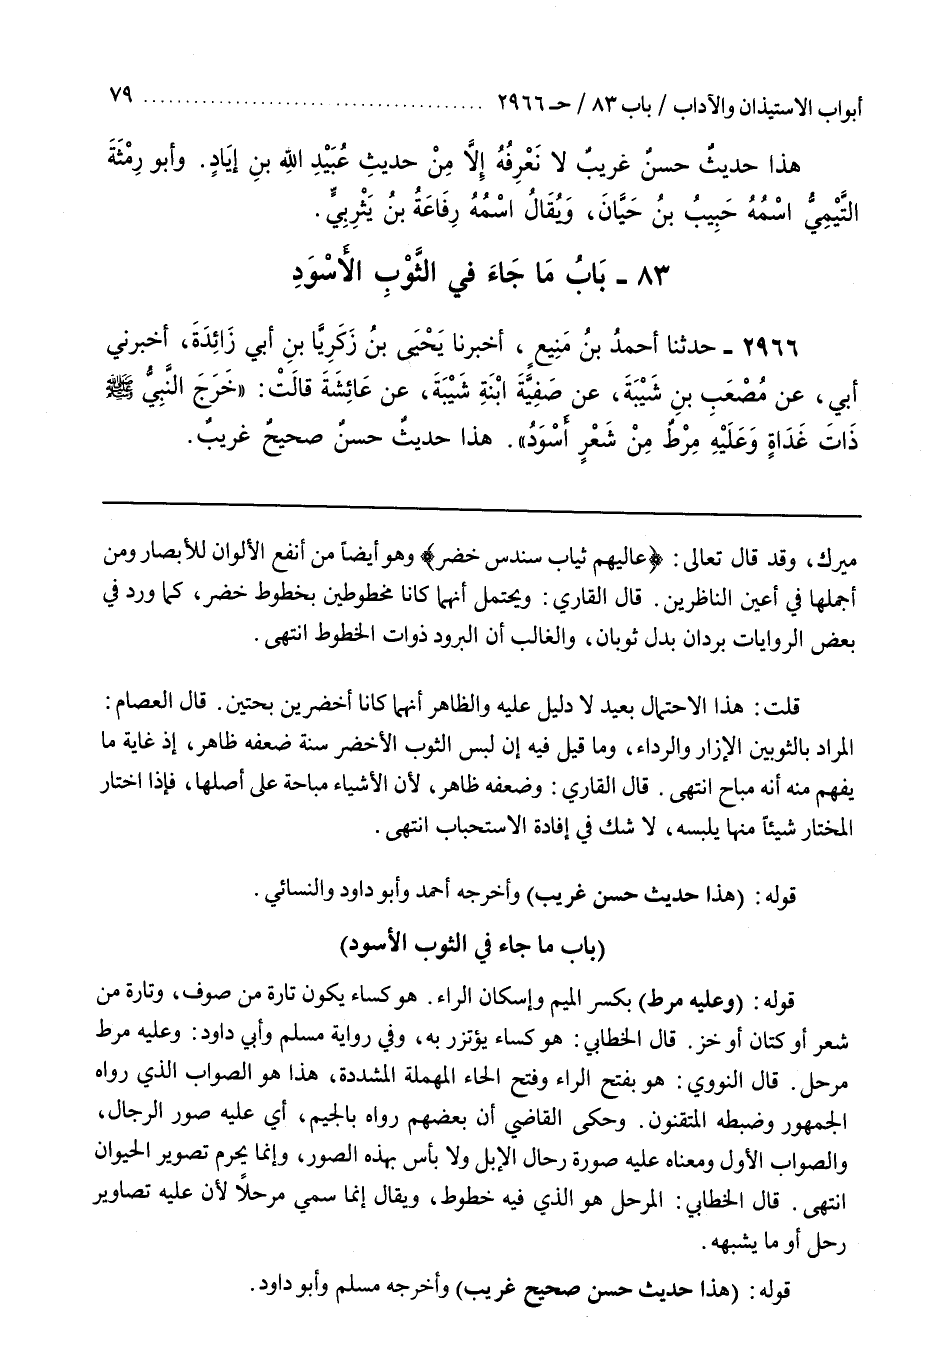 أبواب الاستيذان والآداب / باب ٨٣ / حـ ٢٩٦٦ ........................................ ٧٩
هذا حديثٌ حسنٌ غريبٌ لا نَعْرِفُهُ إِلَّا مِنْ حديثِ عُبَيْدِ اللهِ بنِ إيَادٍ. وأبو رِمْثَةَ
التَّيْمِيُّ اسْمُهُ حَبِيبُ بنُ حَيَّانَ، وَيُقَالُ اسْمُهُ رِفَاعَةُ بنُ يَثْرِبِيٍّ.
٨٣ - بَابُ مَا جَاءَ في الثَّوْبِ الأَسْوَدِ
٢٩٦٦ - حدثنا أحمدُ بنُ مَنِيعٍ، أخبرنا يَحْيَى بنُ زَكَرِيَّا بنِ أبي زَائِدَةَ، أخبرني
أبي، عن مُصْعَبِ بنِ شَيْبَةَ، عن صَفِيَّةَ ابْنَةِ شَيْبَةَ، عن عَائِشَةَ قالَتْ: «خَرَجَ النَّبيُّ ﷺ
ذَاتَ غَدَاةٍ وَعَلَيْهِ مِرْطٌ مِنْ شَعْرٍ أَسْوَدُ». هذا حديثٌ حسنٌ صحيحٌ غريبٌ.
ميرك، وقد قال تعالى: ﴿عاليهم ثياب سندس خضر﴾ وهو أيضاً من أنفع الألوان للأبصار ومن
أجملها في أعين الناظرين. قال القاري: ويحتمل أنهما كانا مخطوطين بخطوط خضر، كما ورد في
بعض الروايات بردان بدل ثوبان، والغالب أن البرود ذوات الخطوط انتهى.
قلت: هذا الاحتمال بعيد لا دليل عليه والظاهر أنهما كانا أخضرين بحتين. قال العصام:
المراد بالثوبين الإزار والرداء، وما قيل فيه إن لبس الثوب الأخضر سنة ضعفه ظاهر، إذ غاية ما
يفهم منه أنه مباح انتهى. قال القاري: وضعفه ظاهر، لأن الأشياء مباحة على أصلها، فإذا اختار
المختار شيئاً منها يلبسه، لا شك في إفادة الاستحباب انتهى.
قوله: (هذا حديث حسن غريب) وأخرجه أحمد وأبو داود والنسائي.
(باب ما جاء في الثوب الأسود)
قوله: (وعليه مرط) بكسر الميم وإسكان الراء. هو كساء يكون تارة من صوف، وتارة من
شعر أو كتان أو خز. قال الخطابي: هو كساء يؤتزر به، وفي رواية مسلم وأبي داود: وعليه مرط
مرحل. قال النووي: هو بفتح الراء وفتح الحاء المهملة المشددة، هذا هو الصواب الذي رواه
الجمهور وضبطه المتقنون. وحكى القاضي أن بعضهم رواه بالجيم، أي عليه صور الرجال،
والصواب الأول ومعناه عليه صورة رحال الإبل ولا بأس بهذه الصور، وإنما يحرم تصوير الحيوان
انتهى. قال الخطابي: المرحل هو الذي فيه خطوط، ويقال إنما سمي مرحلاً لأن عليه تصاوير
رحل أو ما يشبهه.
قوله: (هذا حديث حسن صحيح غريب) وأخرجه مسلم وأبو داود.